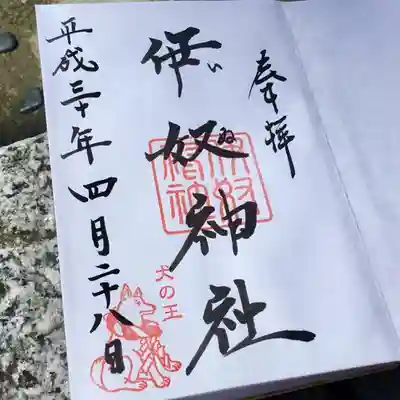 奉拝
伊奴神社
いぬ
犬の王
平成三十年四月二十八日